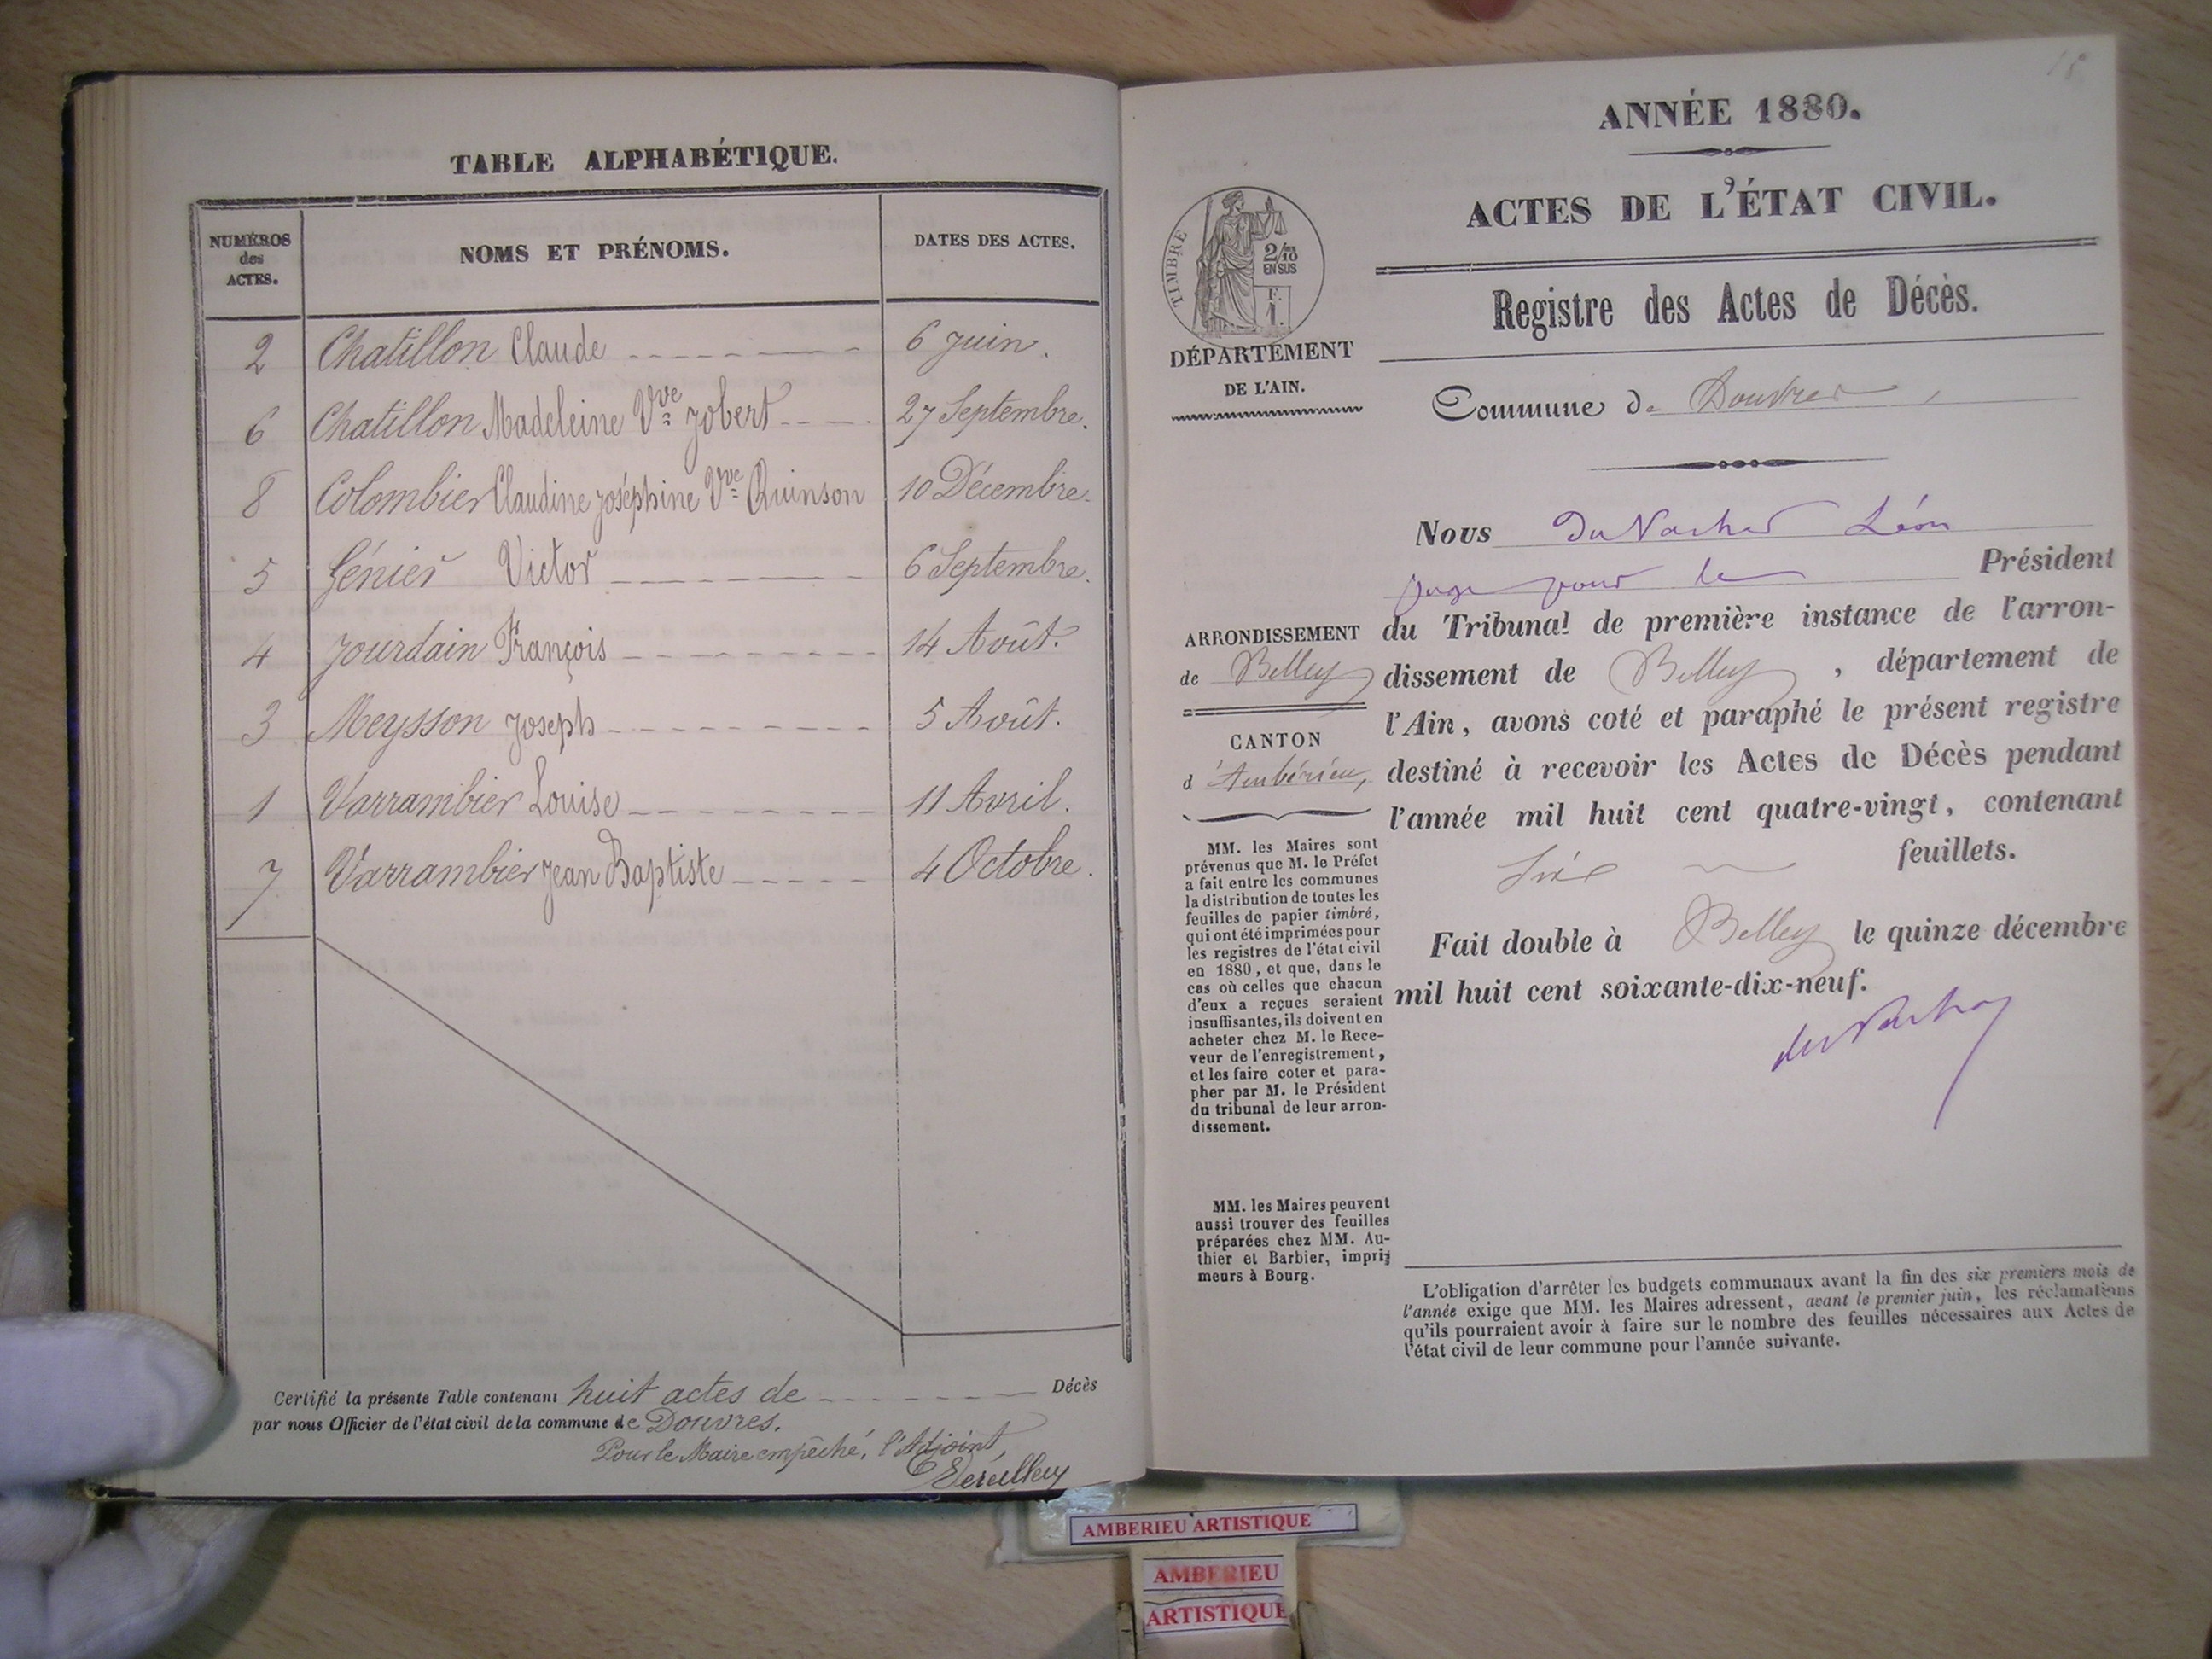 TABLE ALPHABÉTIQUE.
NUMÉROS
des
ACTES.
NOMS ET PRÉNOMS.
DATES DES ACTES.
2 Chatillon Claude 6 Juin.
6 Chatillon Madeleine Vve Jobert 27 Septembre.
8 Colombier Claudine Joséphine Vve Quinson 10 Décembre.
5 Génier Victor 6 Septembre.
4 Jourdain François 14 Août.
3 Meysson Joseph 5 Août.
1 Varrambier Louise 11 Avril.
7 Varrambier Jean Baptiste 4 Octobre.
Certifié la présente Table contenant huit actes de Décès
par nous Officier de l'état civil de la commune de Douvres.
Pour le Maire empêché, l'Adjoint,
ANNÉE 1880.
ACTES DE L'ÉTAT CIVIL.
Registre des Actes de Décès.
TIMBRE
2/10
EN SUS
F.
1.
DÉPARTEMENT
DE L'AIN.
Commune de Douvres,
ARRONDISSEMENT
de Belley
CANTON
d'Ambérieu,
MM. les Maires sont
prévenus que M. le Préfet
a fait entre les communes
la distribution de toutes les
feuilles de papier timbré,
qui ont été imprimées pour
les registres de l'état civil
en 1880, et que, dans le
cas où celles que chacun
d'eux a reçues seraient
insuffisantes, ils doivent en
acheter chez M. le Rece-
veur de l'enregistrement,
et les faire coter et para-
pher par M. le Président
du tribunal de leur arron-
dissement.
MM. les Maires peuvent
aussi trouver des feuilles
préparées chez MM. Au-
thier et Barbier, impri-
meurs à Bourg.
Nous Léon
juge pour le Président
du Tribunal de première instance de l'arron-
dissement de Belley, département de
l'Ain, avons coté et paraphé le présent registre
destiné à recevoir les Actes de Décès pendant
l'année mil huit cent quatre-vingt, contenant
feuillets.
Fait double à Belley le quinze décembre
mil huit cent soixante-dix-neuf.
L'obligation d'arrêter les budgets communaux avant la fin des six premiers mois de
l'année exige que MM. les Maires adressent, avant le premier juin, les réclamations
qu'ils pourraient avoir à faire sur le nombre des feuilles nécessaires aux Actes de
l'état civil de leur commune pour l'année suivante.
AMBERIEU ARTISTIQUE
AMBERIEU
ARTISTIQUE